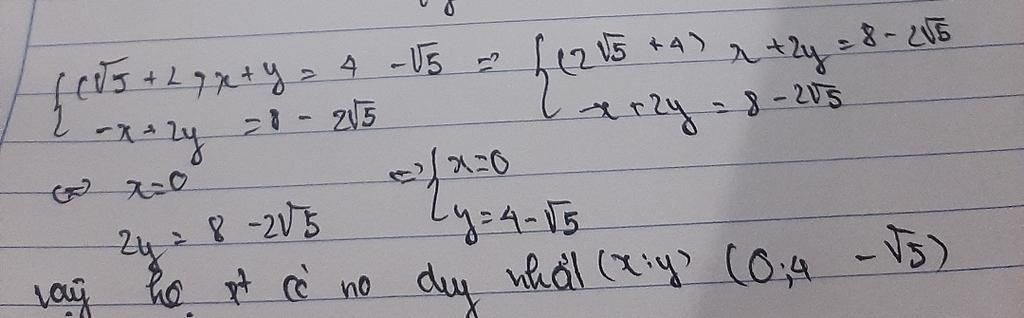 {(√5 + 2) x + y = 4 - √5 => {(2√5 + 4) x + 2y = 8 - 2√5
-x + 2y = 8 - 2√5 -x + 2y = 8 - 2√5
<=> x = 0 <=> {x = 0
2y = 8 - 2√5 y = 4 - √5
vậy hệ pt có no duy nhất (x;y) (0;4 - √5)